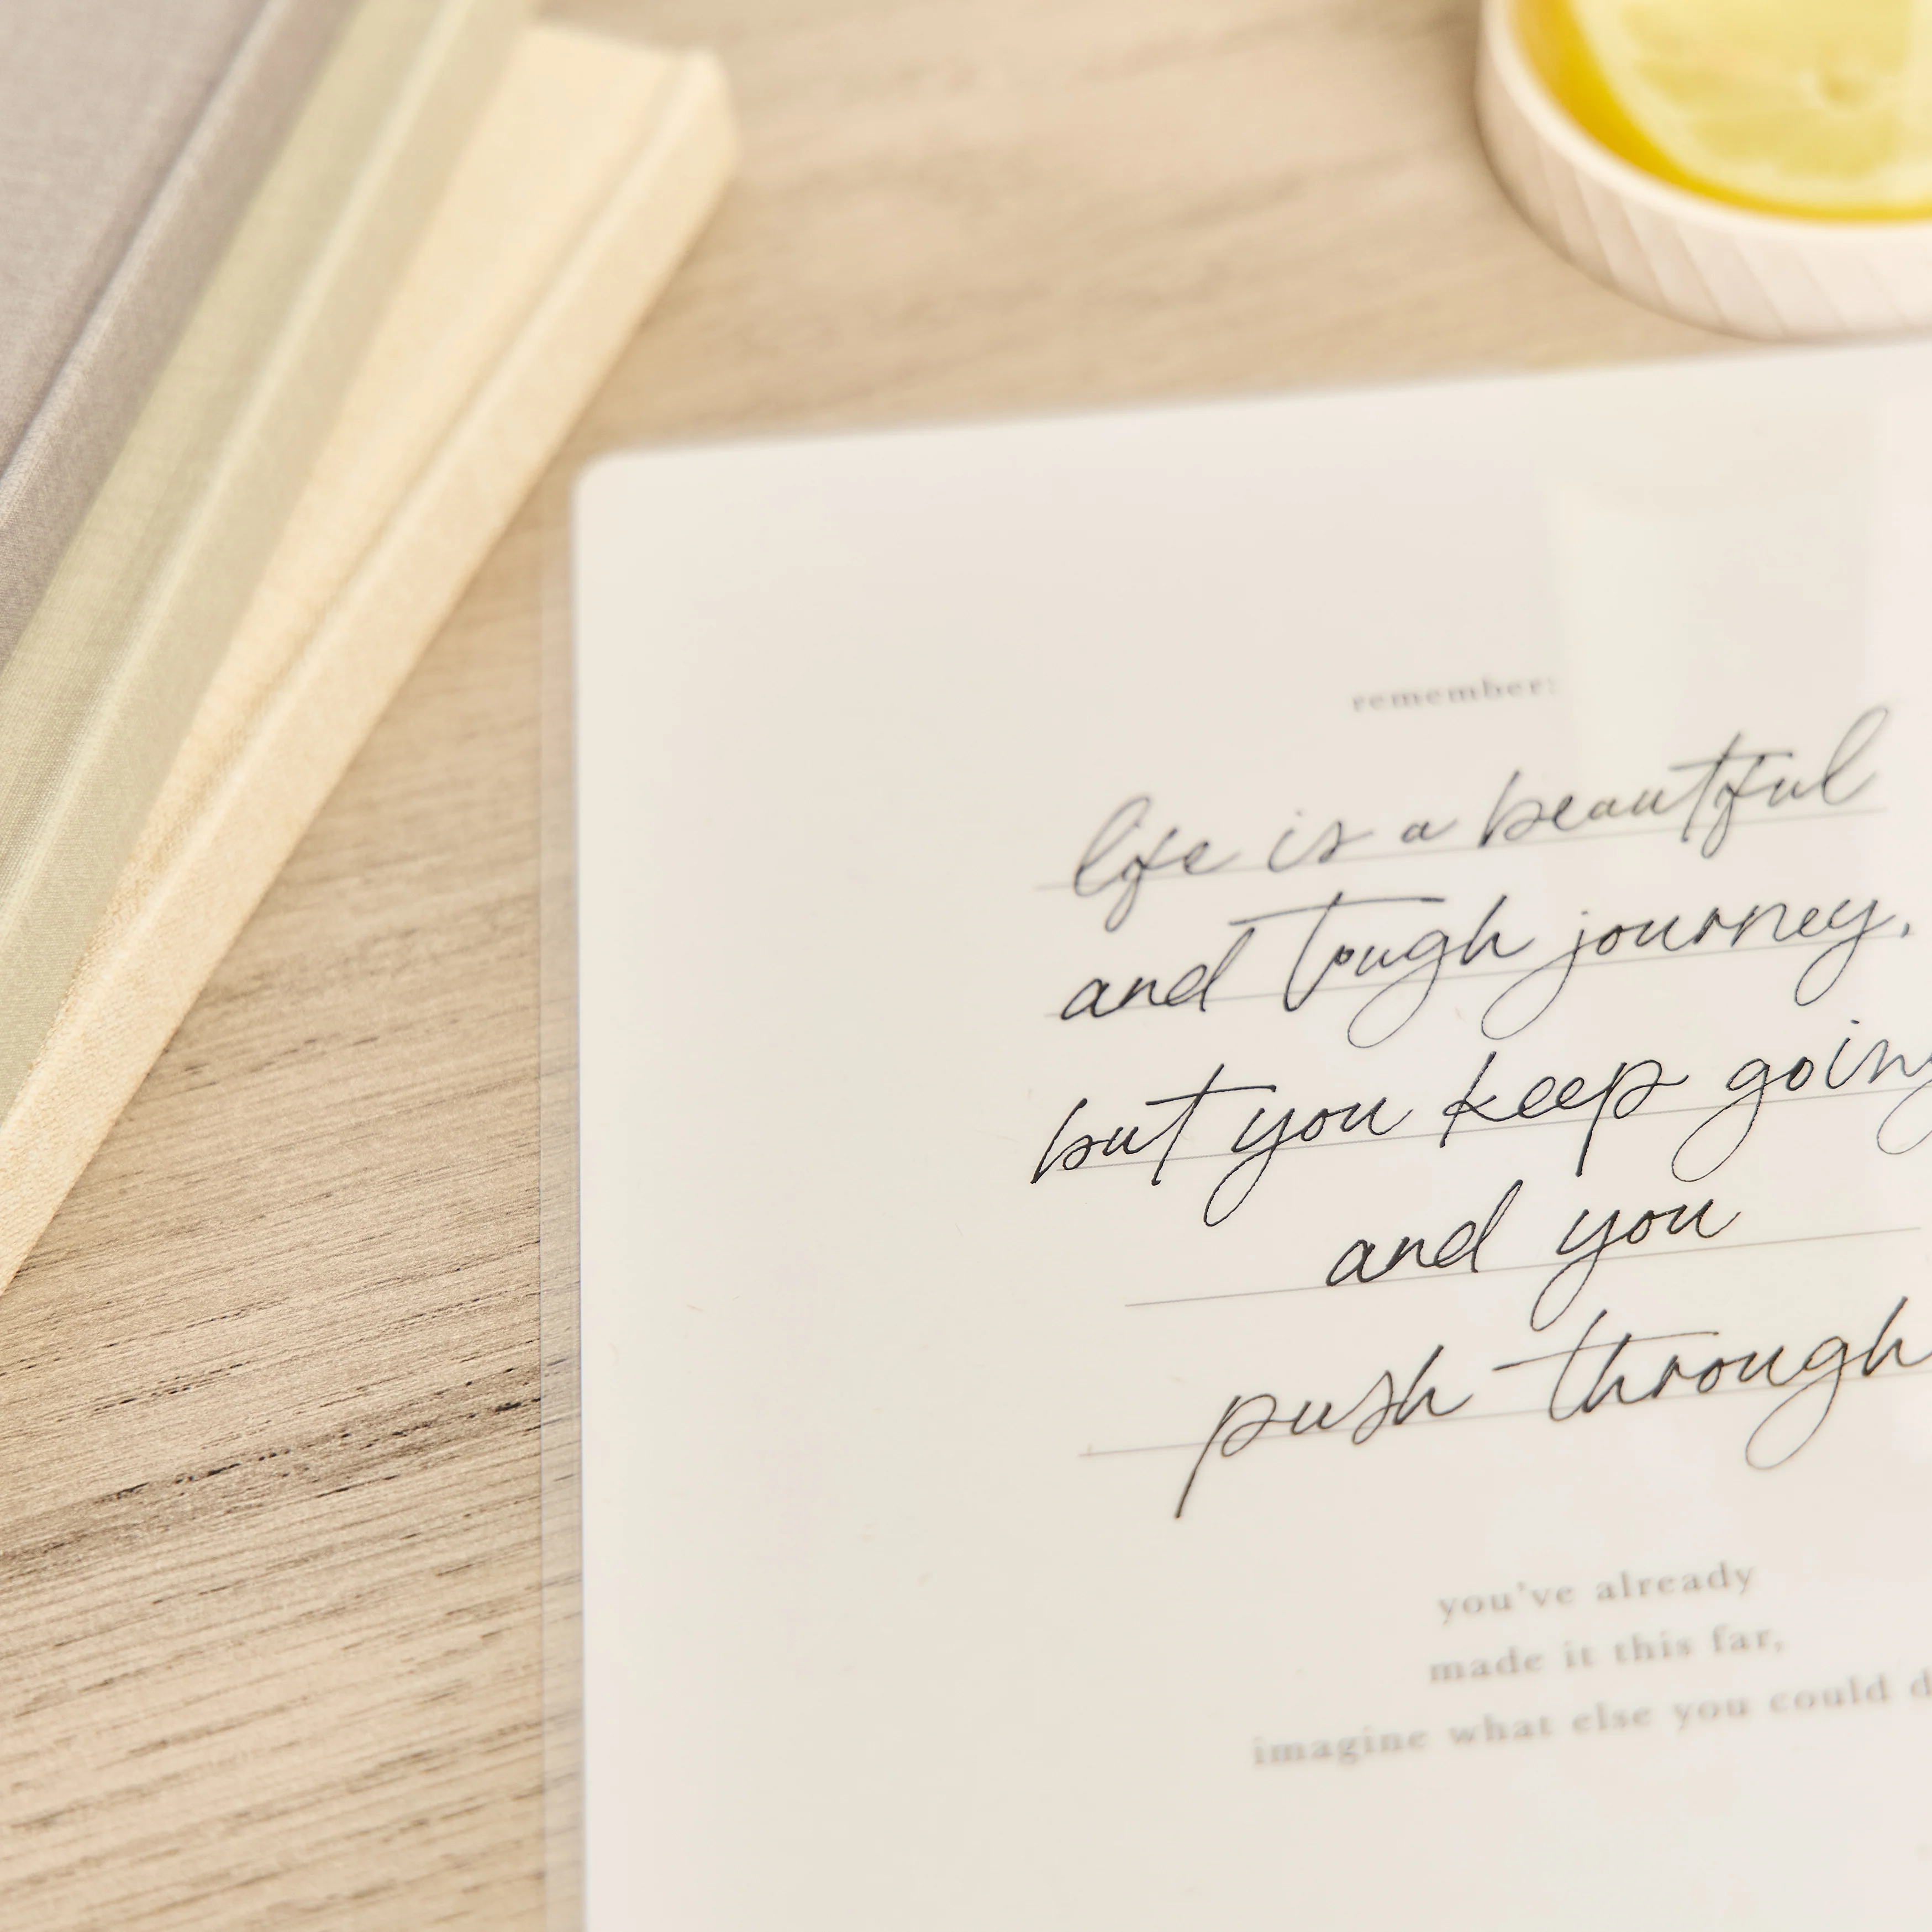 remember:
life is a beautiful
and tough journey,
but you keep going
and you
push through
you've already
made it this far,
imagine what else you could